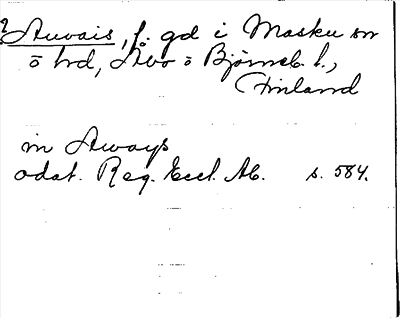 ? Auvais, f. gd i Masku sn
o hd, Åbo o Björneb. l.,
Finland
in Aways
odat. Reg. Eccl. Ab. s. 584.